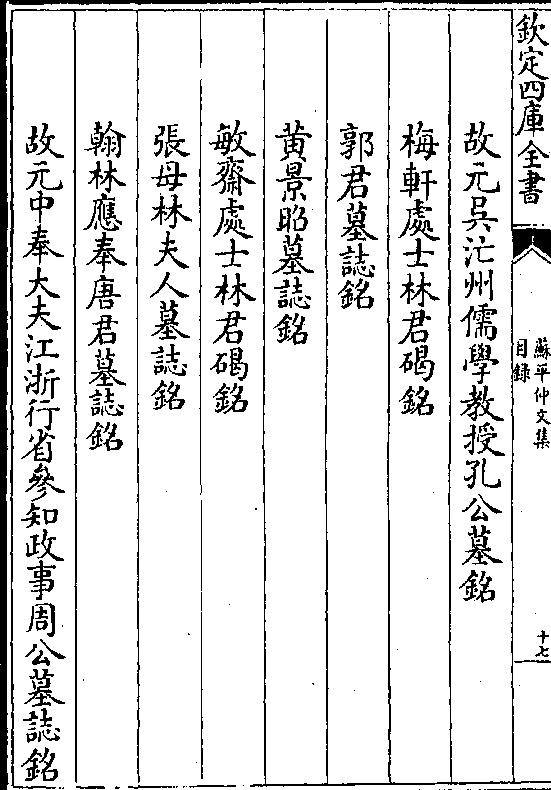 欽定四庫全書
蘇平仲文集
目錄
十七
故元吳江州儒學教授孔公墓銘
梅軒處士林君碣銘
郭君墓誌銘
黃景昭墓誌銘
敏齋處士林君碣銘
張母林夫人墓誌銘
翰林應奉唐君墓誌銘
故元中奉大夫江浙行省參知政事周公墓誌銘